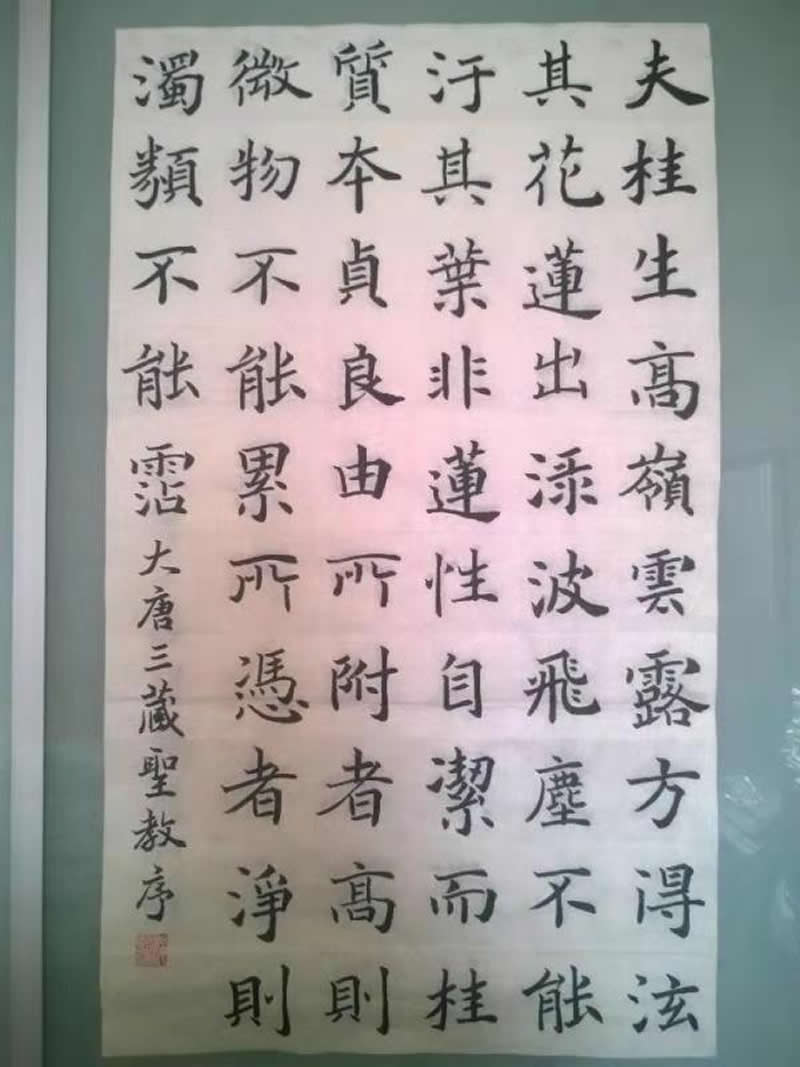 夫桂生高嶺雲露方得泫
其花蓮出淥波飛塵不能
汙其葉非蓮性自潔而桂
質本貞良由所附者高則
微物不能累所憑者淨則
濁類不能霑大唐三藏聖教序